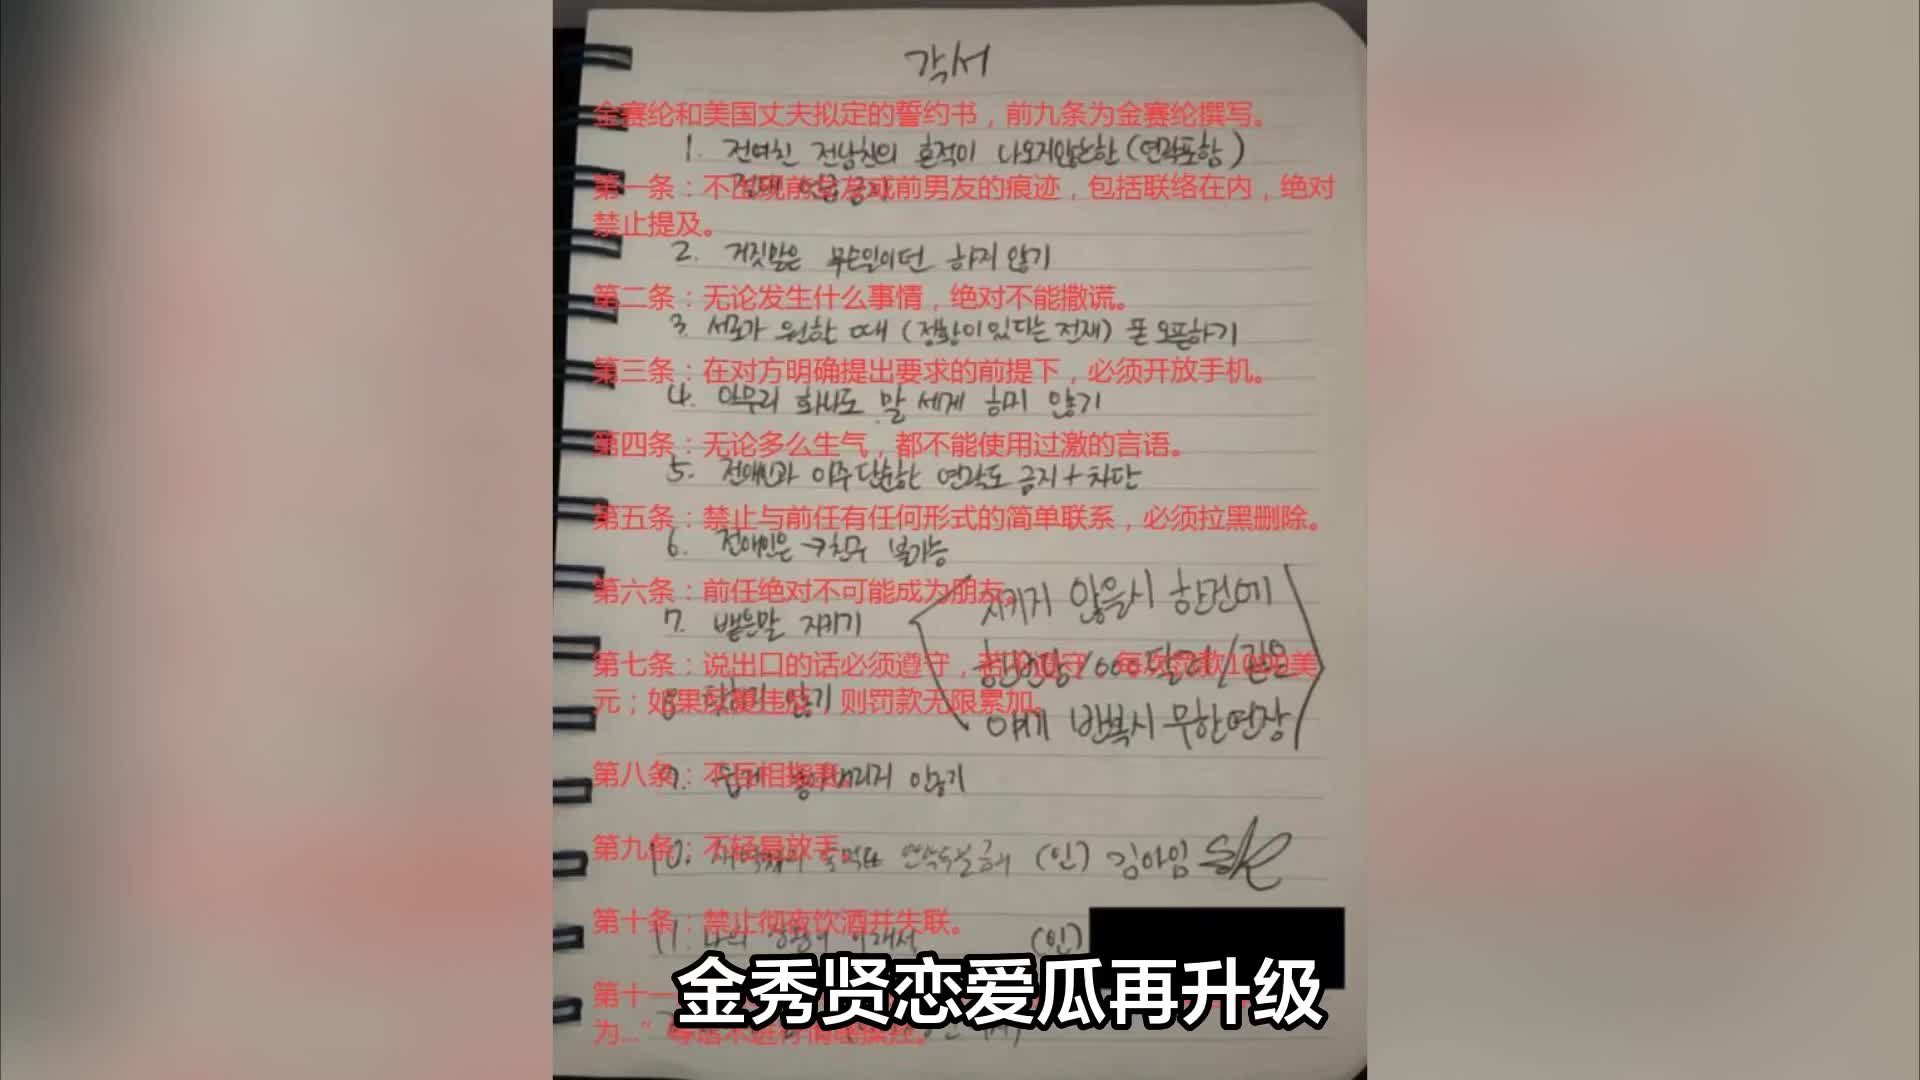 각서
金赛纶和美国丈夫拟定的誓约书，前九条为金赛纶撰写。
1. 전여친 전남친의 흔적이 나오지않는한(연락포함)
第一条：不出现前女友或前男友的痕迹，包括联络在内，绝对
절대 언급 금지
禁止提及。
2. 거짓말은 무슨일이던 하지 않기
第二条：无论发生什么事情，绝对不能撒谎。
3. 서로가 원한 때 (정황이 있다는 전재) 폰 오픈하기
第三条：在对方明确提出要求的前提下，必须开放手机。
4. 아무리 화나도 말 세게 하지 않기
第四条：无论多么生气，都不能使用过激的言语。
5. 전애인과 아주 단순한 연락도 금지+차단
第五条：禁止与前任有任何形式的简单联系，必须拉黑删除。
6. 전애인은 → 친구 불가능
第六条：前任绝对不可能成为朋友。
지키지 않을시 한건에
7. 뱉은말 지키기
第七条：说出口的话必须遵守，每次罚款1000美
한건당 1000달러/같은
元；如果反复违反，则罚款无限累加。
8. 않기
얘기 반복시 무한연장
第八条：不互相指责。
9. 쉽게 놓아버리지 않기
第九条：不轻易放手。
10. 연락두절금지 (인) 김아임
第十条：禁止彻夜饮酒并失联。
11. 나의 (인)
第十一
为..."
金秀贤恋爱瓜再升级